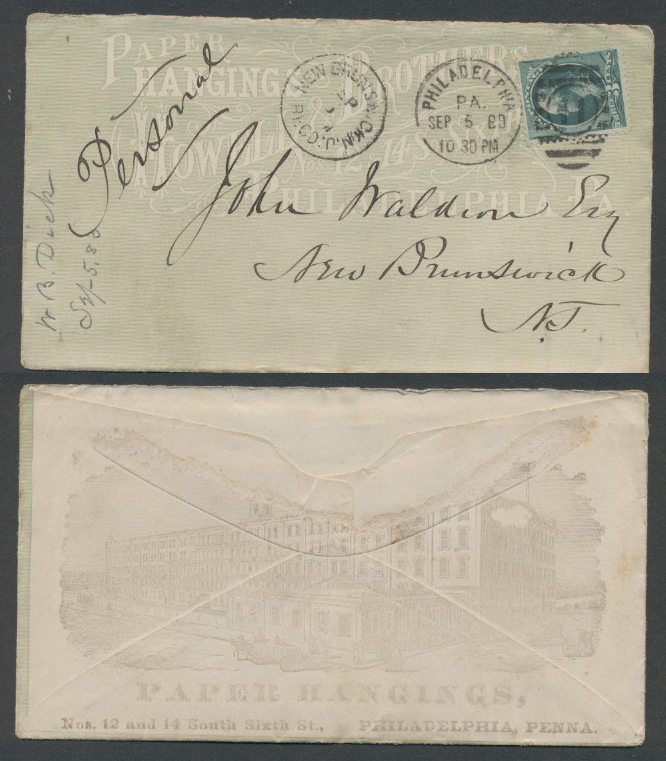 PAPER
HANGINGS
BROTHERS
HOWELL
12 & 14 S.
PHILADELPHIA PA
Personal
NEW BRUNSWICK N.J.
SP
PHILADELPHIA
PA.
SEP 5 80
10 30 PM
John Waldron Esq
New Brunswick
N.J.
W B. Dick
Sep 5, 80
PAPER HANGINGS,
Nos. 12 and 14 South Sixth St., PHILADELPHIA, PENNA.